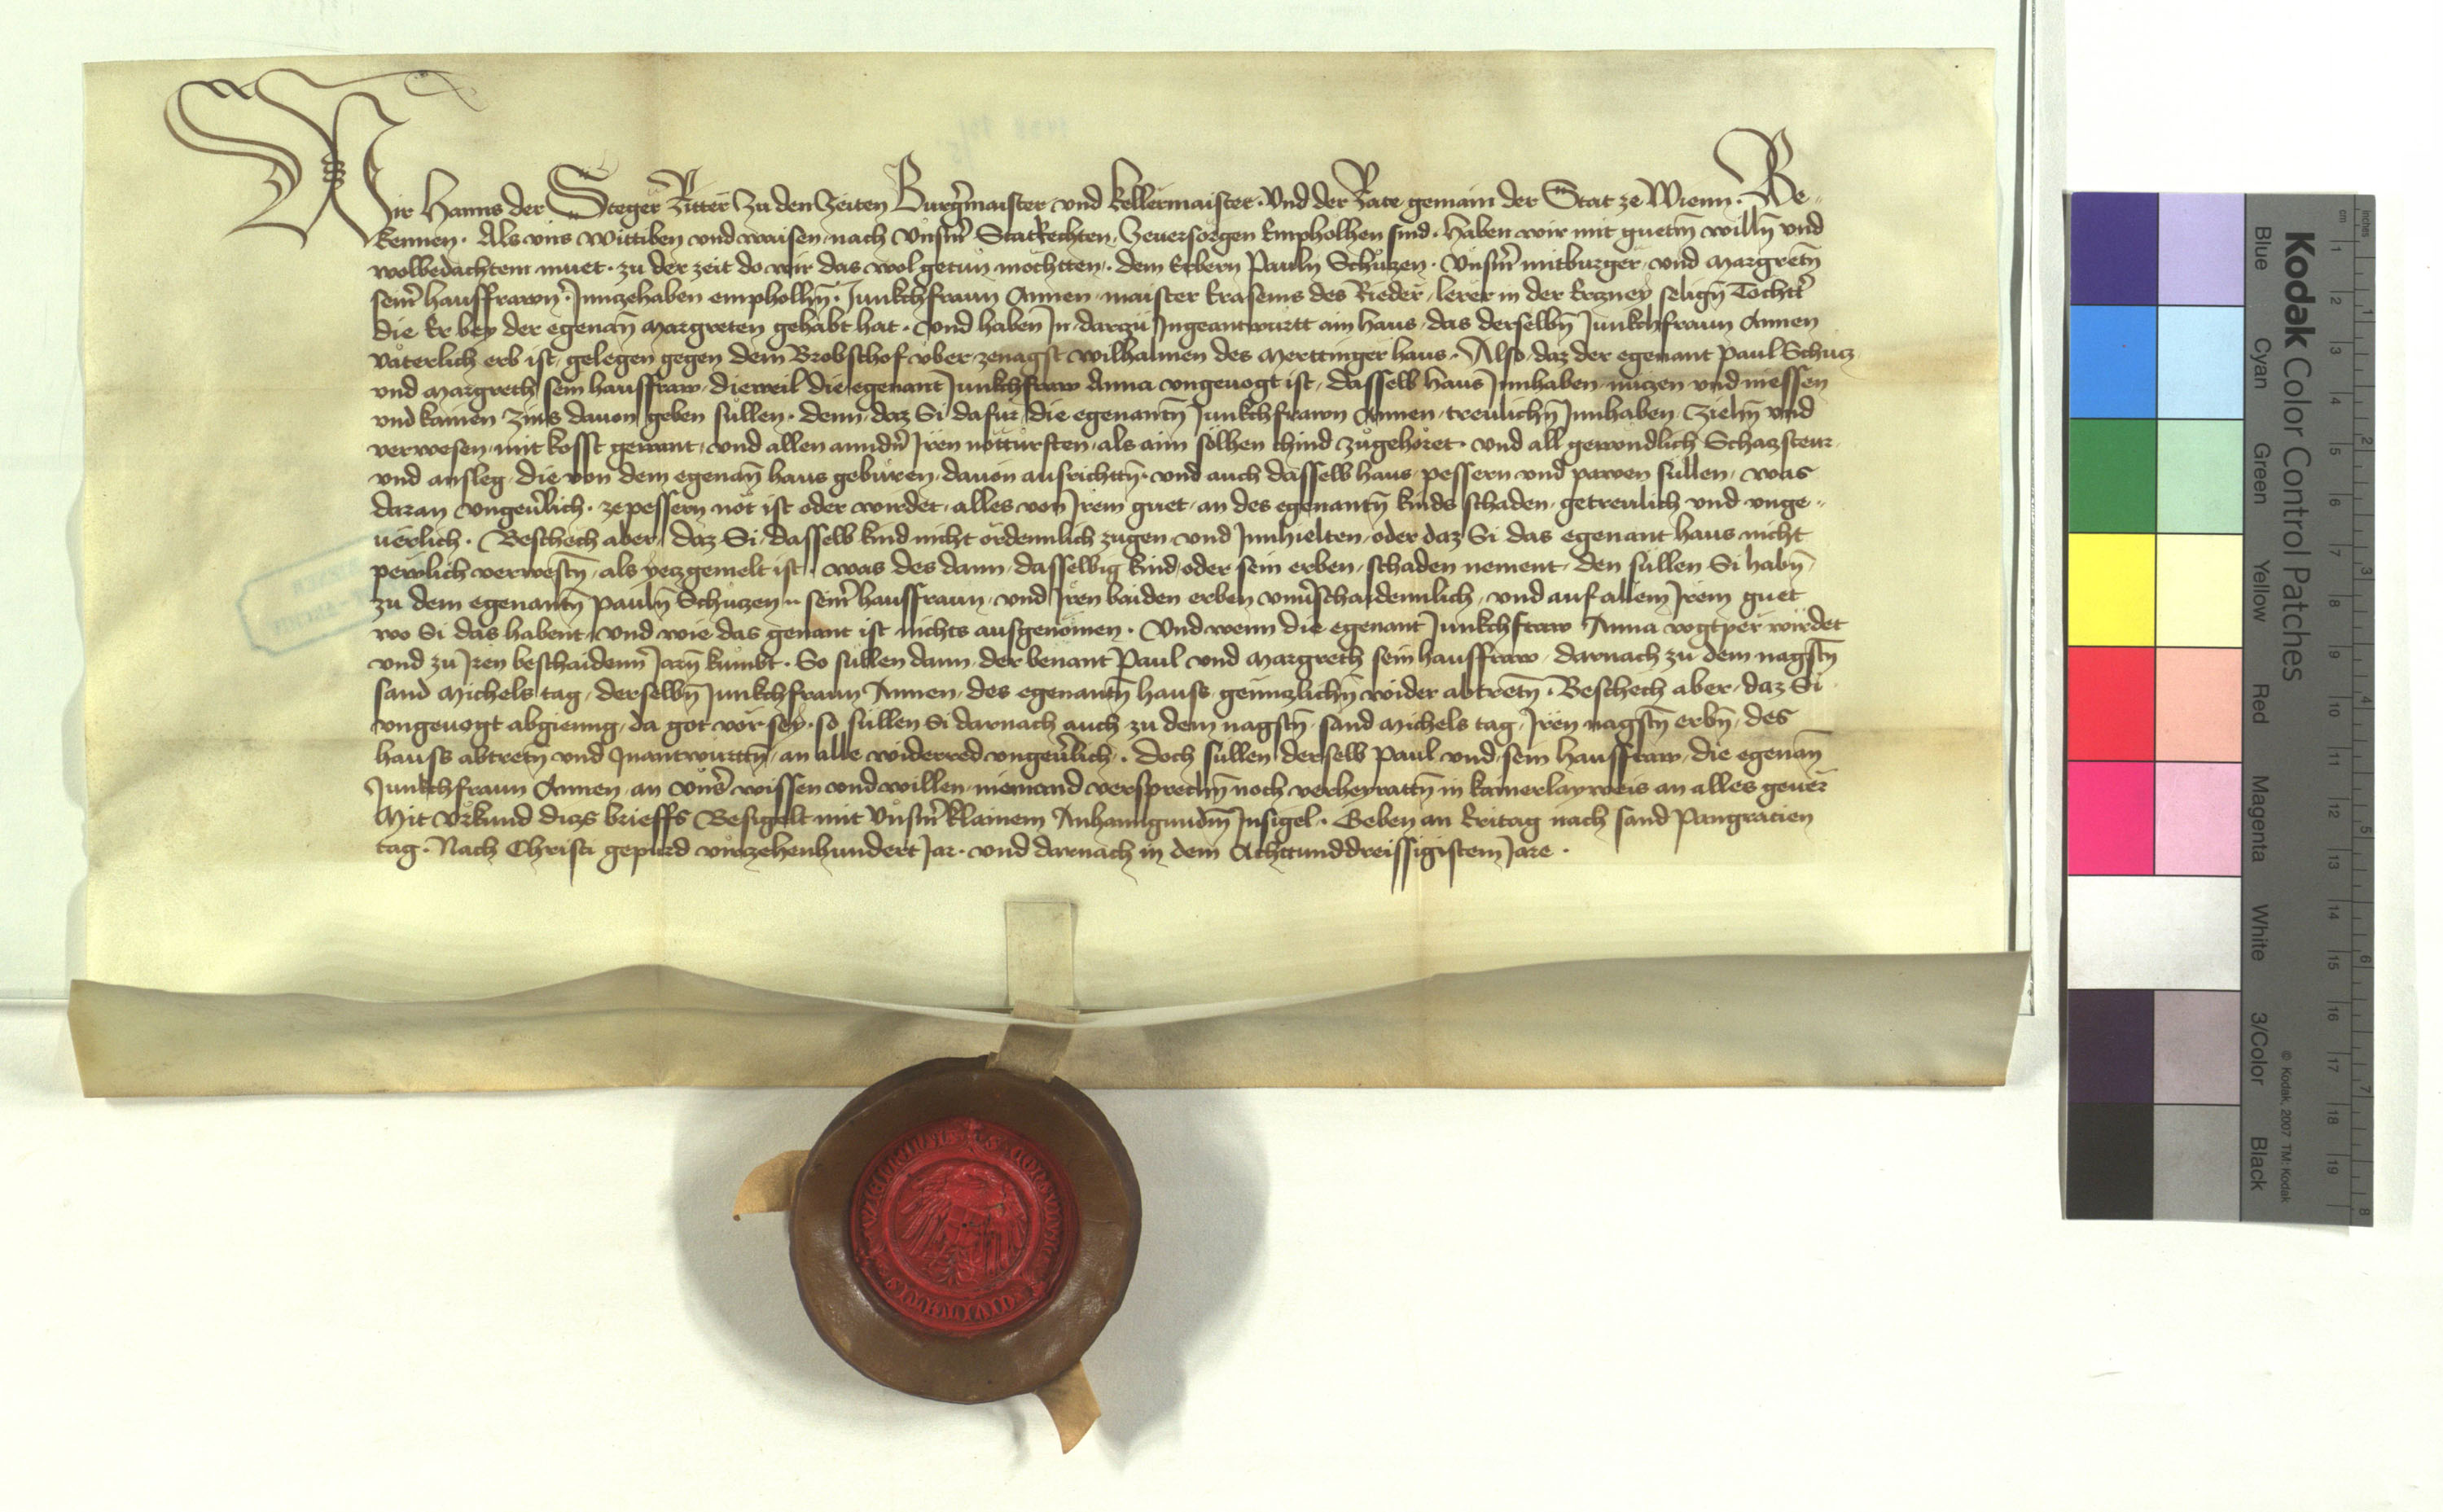 Wir Hanns der Steger Ritter Zu den Zeiten Burgermaister vnd kellermaister · Vnd der Rate gemain der Stat ze Wienn · Be„
kennen · Als vns wittiben vnd waisen nach Vnsern̄ Statrechten Zeuersorgen Empholhen sind · Haben wir mit guetm̄ willn̄ vnd
wolbedachtem muet · zu der zeit do wir das wol getun mochtten · dem Erbern Pauln Schuczen · Vnserm̄ mitburger vnd Margretn̄
seinr̄ hausfrawn̄ · Innzehaben empholhn̄ · Junkchfraun Annen maister Erasems des Rieder lerer in der Erczney selign̄ Tochtr̄
die Er bey der egenan̄ Margreten gehabt hat · Vnd haben In darzu Ingeantwurtt ain haus das derselbn̄ Junkchfraun Annen
vaterlich erb ist gelegen gegen dem Brobsthof vber zenagst wilhalmen des Merttinger haus · Also daz der egenant Paul Schucz
vnd Margreth sein hausfraw dieweil die egenant Junkchfraw Anna vngeuogt ist dasselb haus Innhaben nuczen vnd niessen
vnd kainen zins dauon geben sullen · denn daz Si dafur die egenantn̄ Junkchfrawn Annen treulichn̄ Innhaben Ziehn̄ vnd
verwesen mit kosst gewant vnd allen anndn̄ Iren notturften als aim solhen chind zugehoret · vnd all gewondlich Schaczsteur
vnd ansleg die von dem egenan̄ haus geburen dauon ausrichttn̄ · vnd auch dasselb haus pessern vnd pawen sullen was
daran vngeuerlich · zepessern not ist oder wirdet alles von Irem guet an des egenantn̄ kinds schaden getreulich vnd vnge„
uerlich · Beschech aber daz Si dasselb kind nicht ordennlich zugen vnd Innhielten oder daz Si das egenant haus nicht
pewlich verwestn̄ als yecz gemelt ist · was des dann dasselbig kind oder sein erben schaden nement den sullen Si habn̄
zu dem egenantn̄ Pauln̄ Schuczen seinr̄ hausfraun vnd Iren baiden erben vnuerschaidennlich vnd auf allem Irem guet
wo Si das habent vnd wie das genant ist nichts ausgenomen · Vnd wenn die egenant Junkchfraw Anna vogtper wirdet
vnd zu Iren beschaidenn̄ Jarn̄ kumbt · So sullen dann der benant Paul vnd Margreth sein hausfraw darnach zu dem nagstn̄
sand Michels tag derselbn̄ Junkchfraun Annen des egenantn̄ hauss genczlichn̄ wider abtretn̄ · Beschech aber daz Si
vngeuogt abgienng da got vor sey · so sullen Si darnach auch zu dem nagstn̄ sand Michels tag Iren nagstn̄ erbn̄ des
hauss abtretn̄ vnd Inantwurttn̄ an alle widerred vngeuerlich · doch sullen derselb Paul vnd sein hausfraw die egenan̄
Junkchfraun Annen an vnsr̄ wissen vnd willen niemand versprechn̄ noch verheyrattn̄ in kainerlay weis an alles geuer̄
Mit vrkund diczs brieffs Besigelt mit Vnserm̄ klainem Anhanngundm̄ Insigel · Geben an Freitag nach sand Pangracien
tag · Nach Christi gepurd virczehenhundert Jar · vnd darnach in dem Achttunddreissigistem Jare ·
Kodak Color Control Patches
© Kodak, 2007 TM: Kodak
Blue Cyan Green Yellow Red Magenta White 3/Color Black
cm 1 2 3 4 5 6 7 8 9 10 11 12 13 14 15 16 17 18 19
inches 1 2 3 4 5 6 7 8